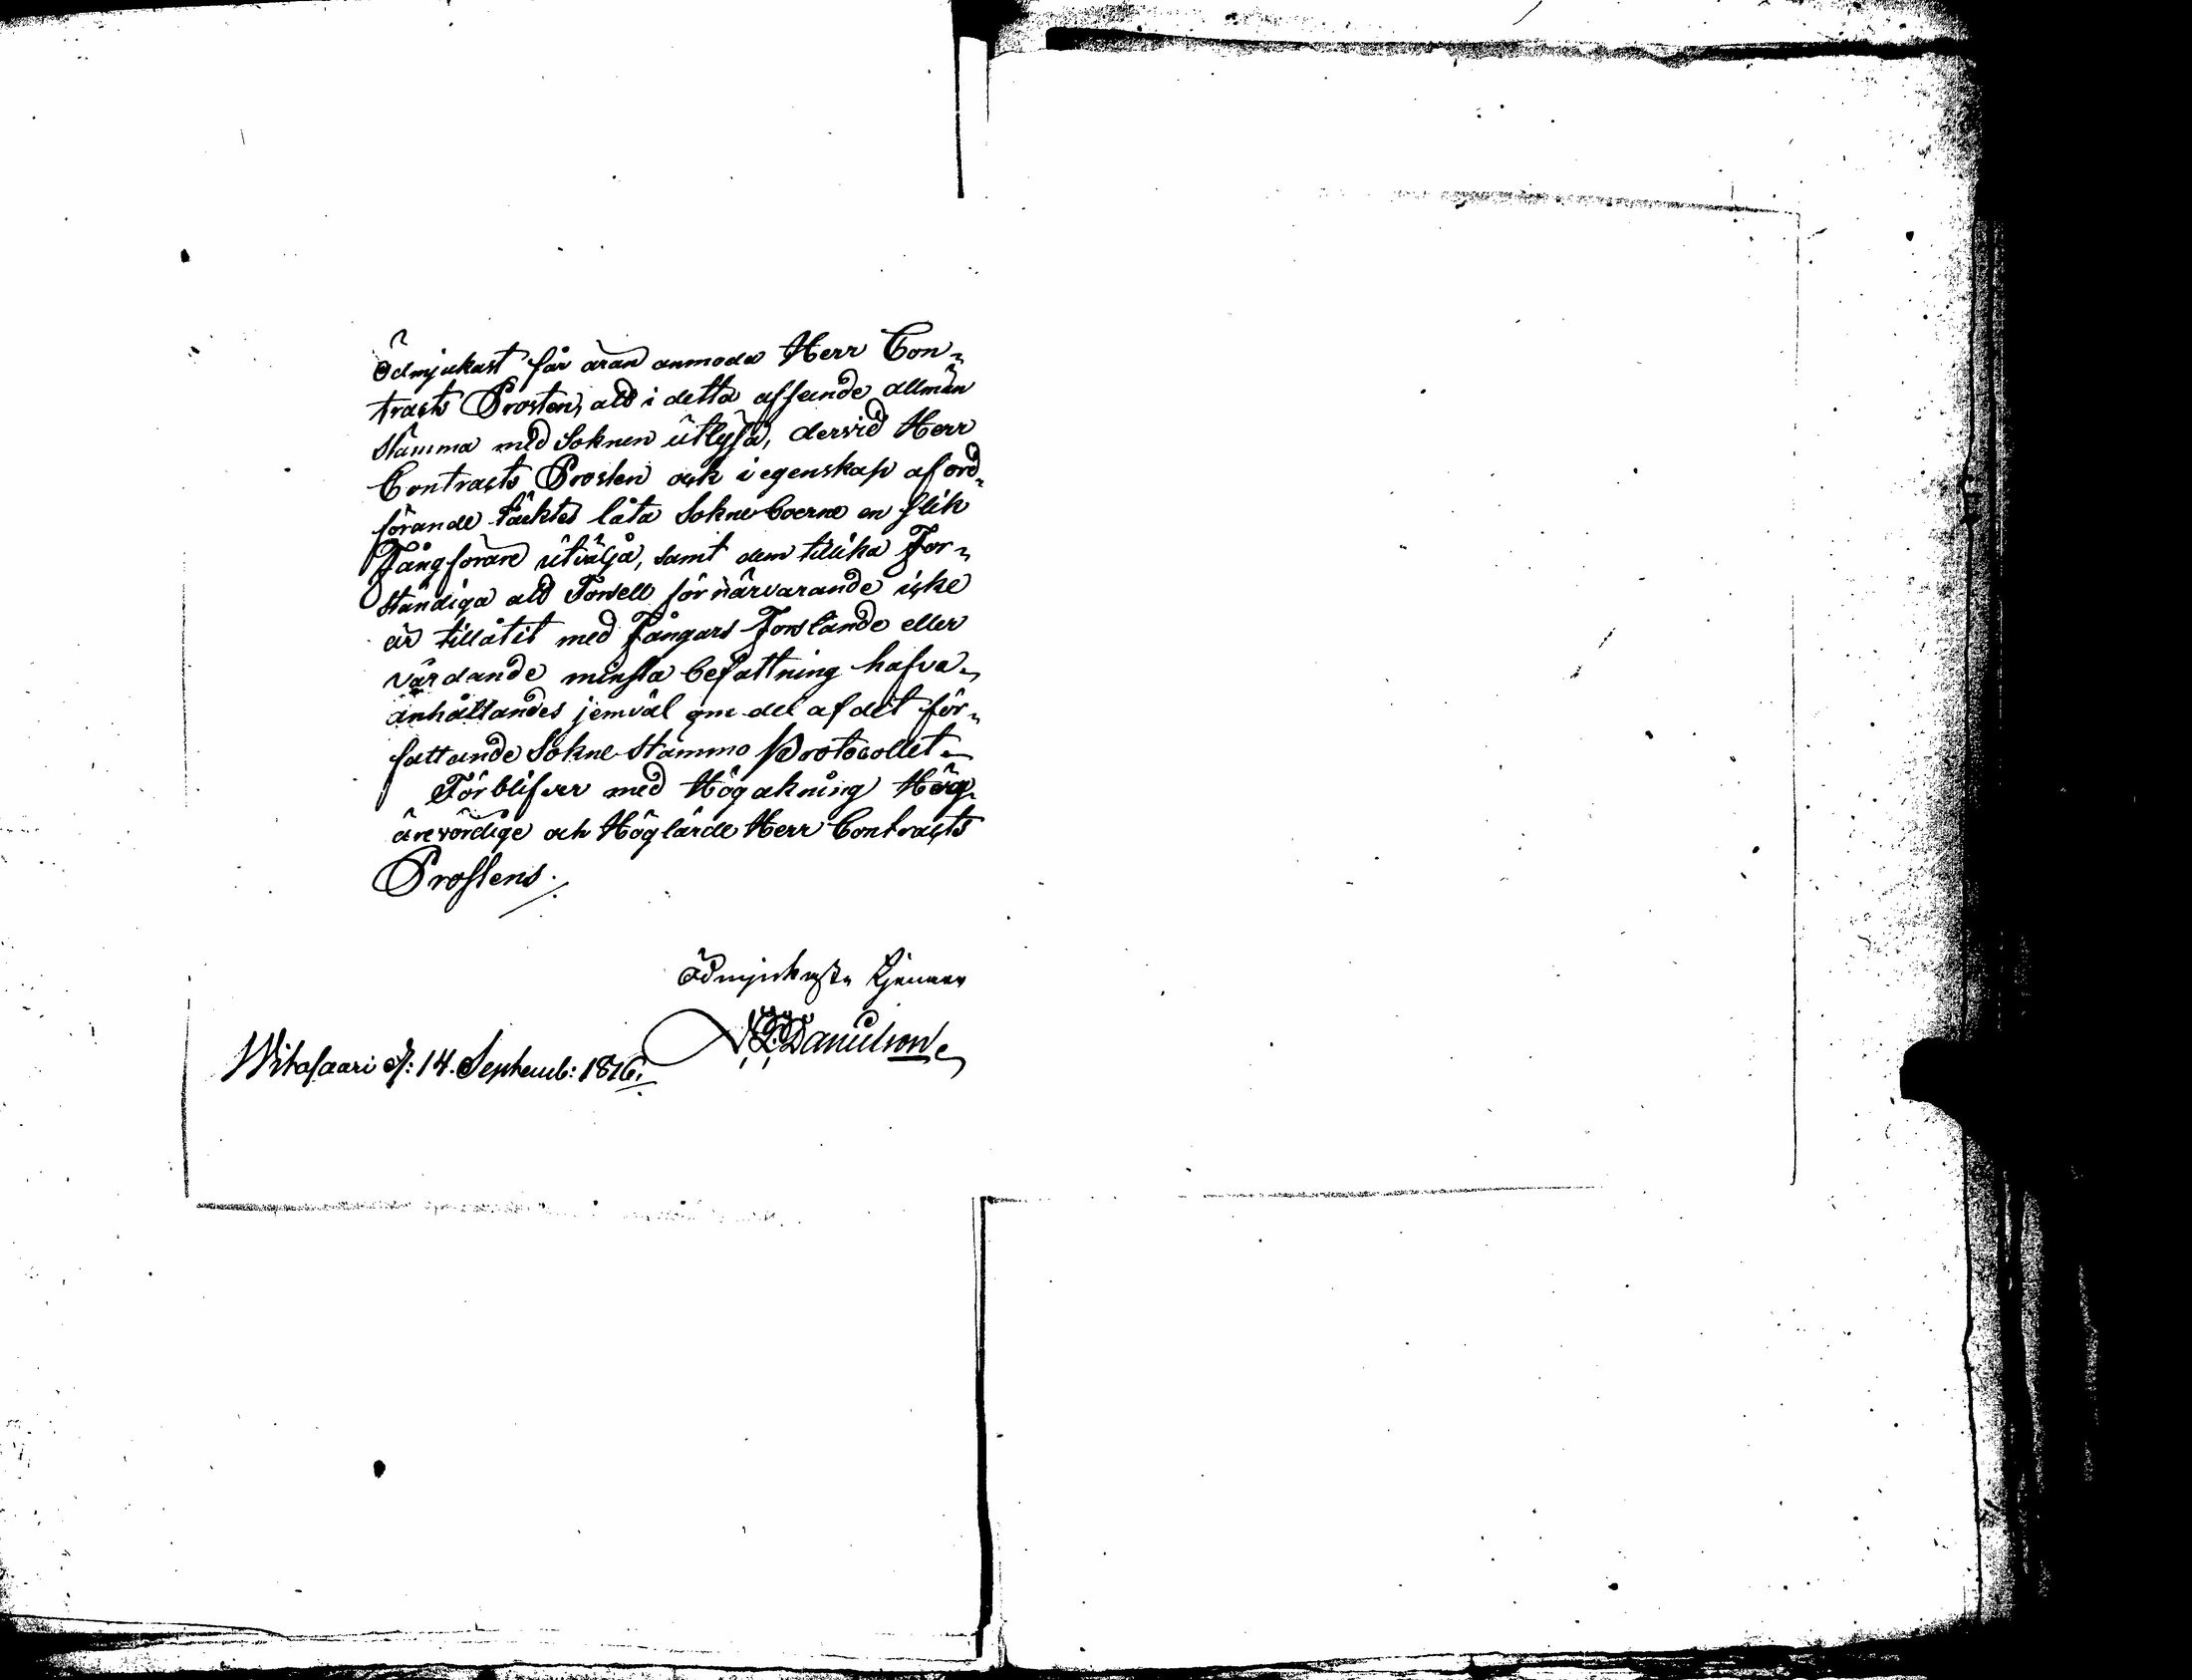 ödmjukast får äran anmoda Herr Con-
tracts Prosten, att i detta afseende allmän
stämma med Soknen utlysa, dervid Herr
Contracts Prosten ock i egenskap af ord-
förande täcktes låta Sokneboerne en slik
Fångförare utvälja, samt dem tillika För-
ständiga att Torvell för närvarande icke
är tillåtit med Fångars Forslande eller
vårdande minsta befattning hafva,
anhållandes jemväl om del af det för-
fattande Sokne Stämmo Protocollet.
Förblifver med Högakning Hög-
ärevördige och Höglärde Herr Contracts
Prostens.
ödmjukaste tjenare
Danielson
Witasaari d: 14. Septemb: 1816.